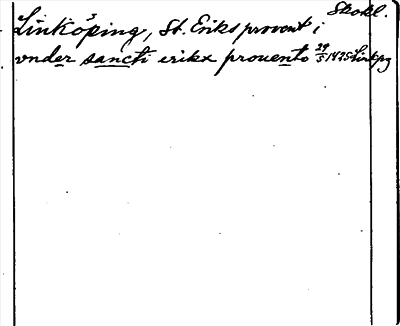 Skokl.
Linköping, St. Eriks provent i
vnder sancti erikx prouento 29/5 1475 Linkpg